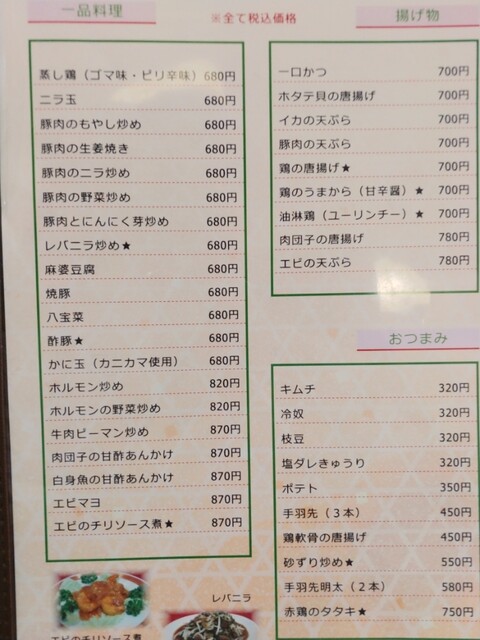 一品料理
※全て税込価格
蒸し鶏（ゴマ味・ピリ辛味）680円
ニラ玉 680円
豚肉のもやし炒め 680円
豚肉の生姜焼き 680円
豚肉のニラ炒め 680円
豚肉の野菜炒め 680円
豚肉とにんにく芽炒め 680円
レバニラ炒め★ 680円
麻婆豆腐 680円
焼豚 680円
八宝菜 680円
酢豚★ 680円
かに玉（カニカマ使用） 680円
ホルモン炒め 820円
ホルモンの野菜炒め 820円
牛肉ピーマン炒め 870円
肉団子の甘酢あんかけ 870円
白身魚の甘酢あんかけ 870円
エビマヨ 870円
エビのチリソース煮★ 870円
エビのチリソース煮
レバニラ
揚げ物
一口かつ 700円
ホタテ貝の唐揚げ 700円
イカの天ぷら 700円
豚肉の天ぷら 700円
鶏の唐揚げ★ 700円
鶏のうまから（甘辛醤）★ 700円
油淋鶏（ユーリンチー）★ 700円
肉団子の唐揚げ 780円
エビの天ぷら 780円
おつまみ
キムチ 320円
冷奴 320円
枝豆 320円
塩ダレきゅうり 320円
ポテト 350円
手羽先（３本） 450円
鶏軟骨の唐揚げ 450円
砂ずり炒め★ 550円
手羽先明太（２本） 580円
赤鶏のタタキ★ 750円